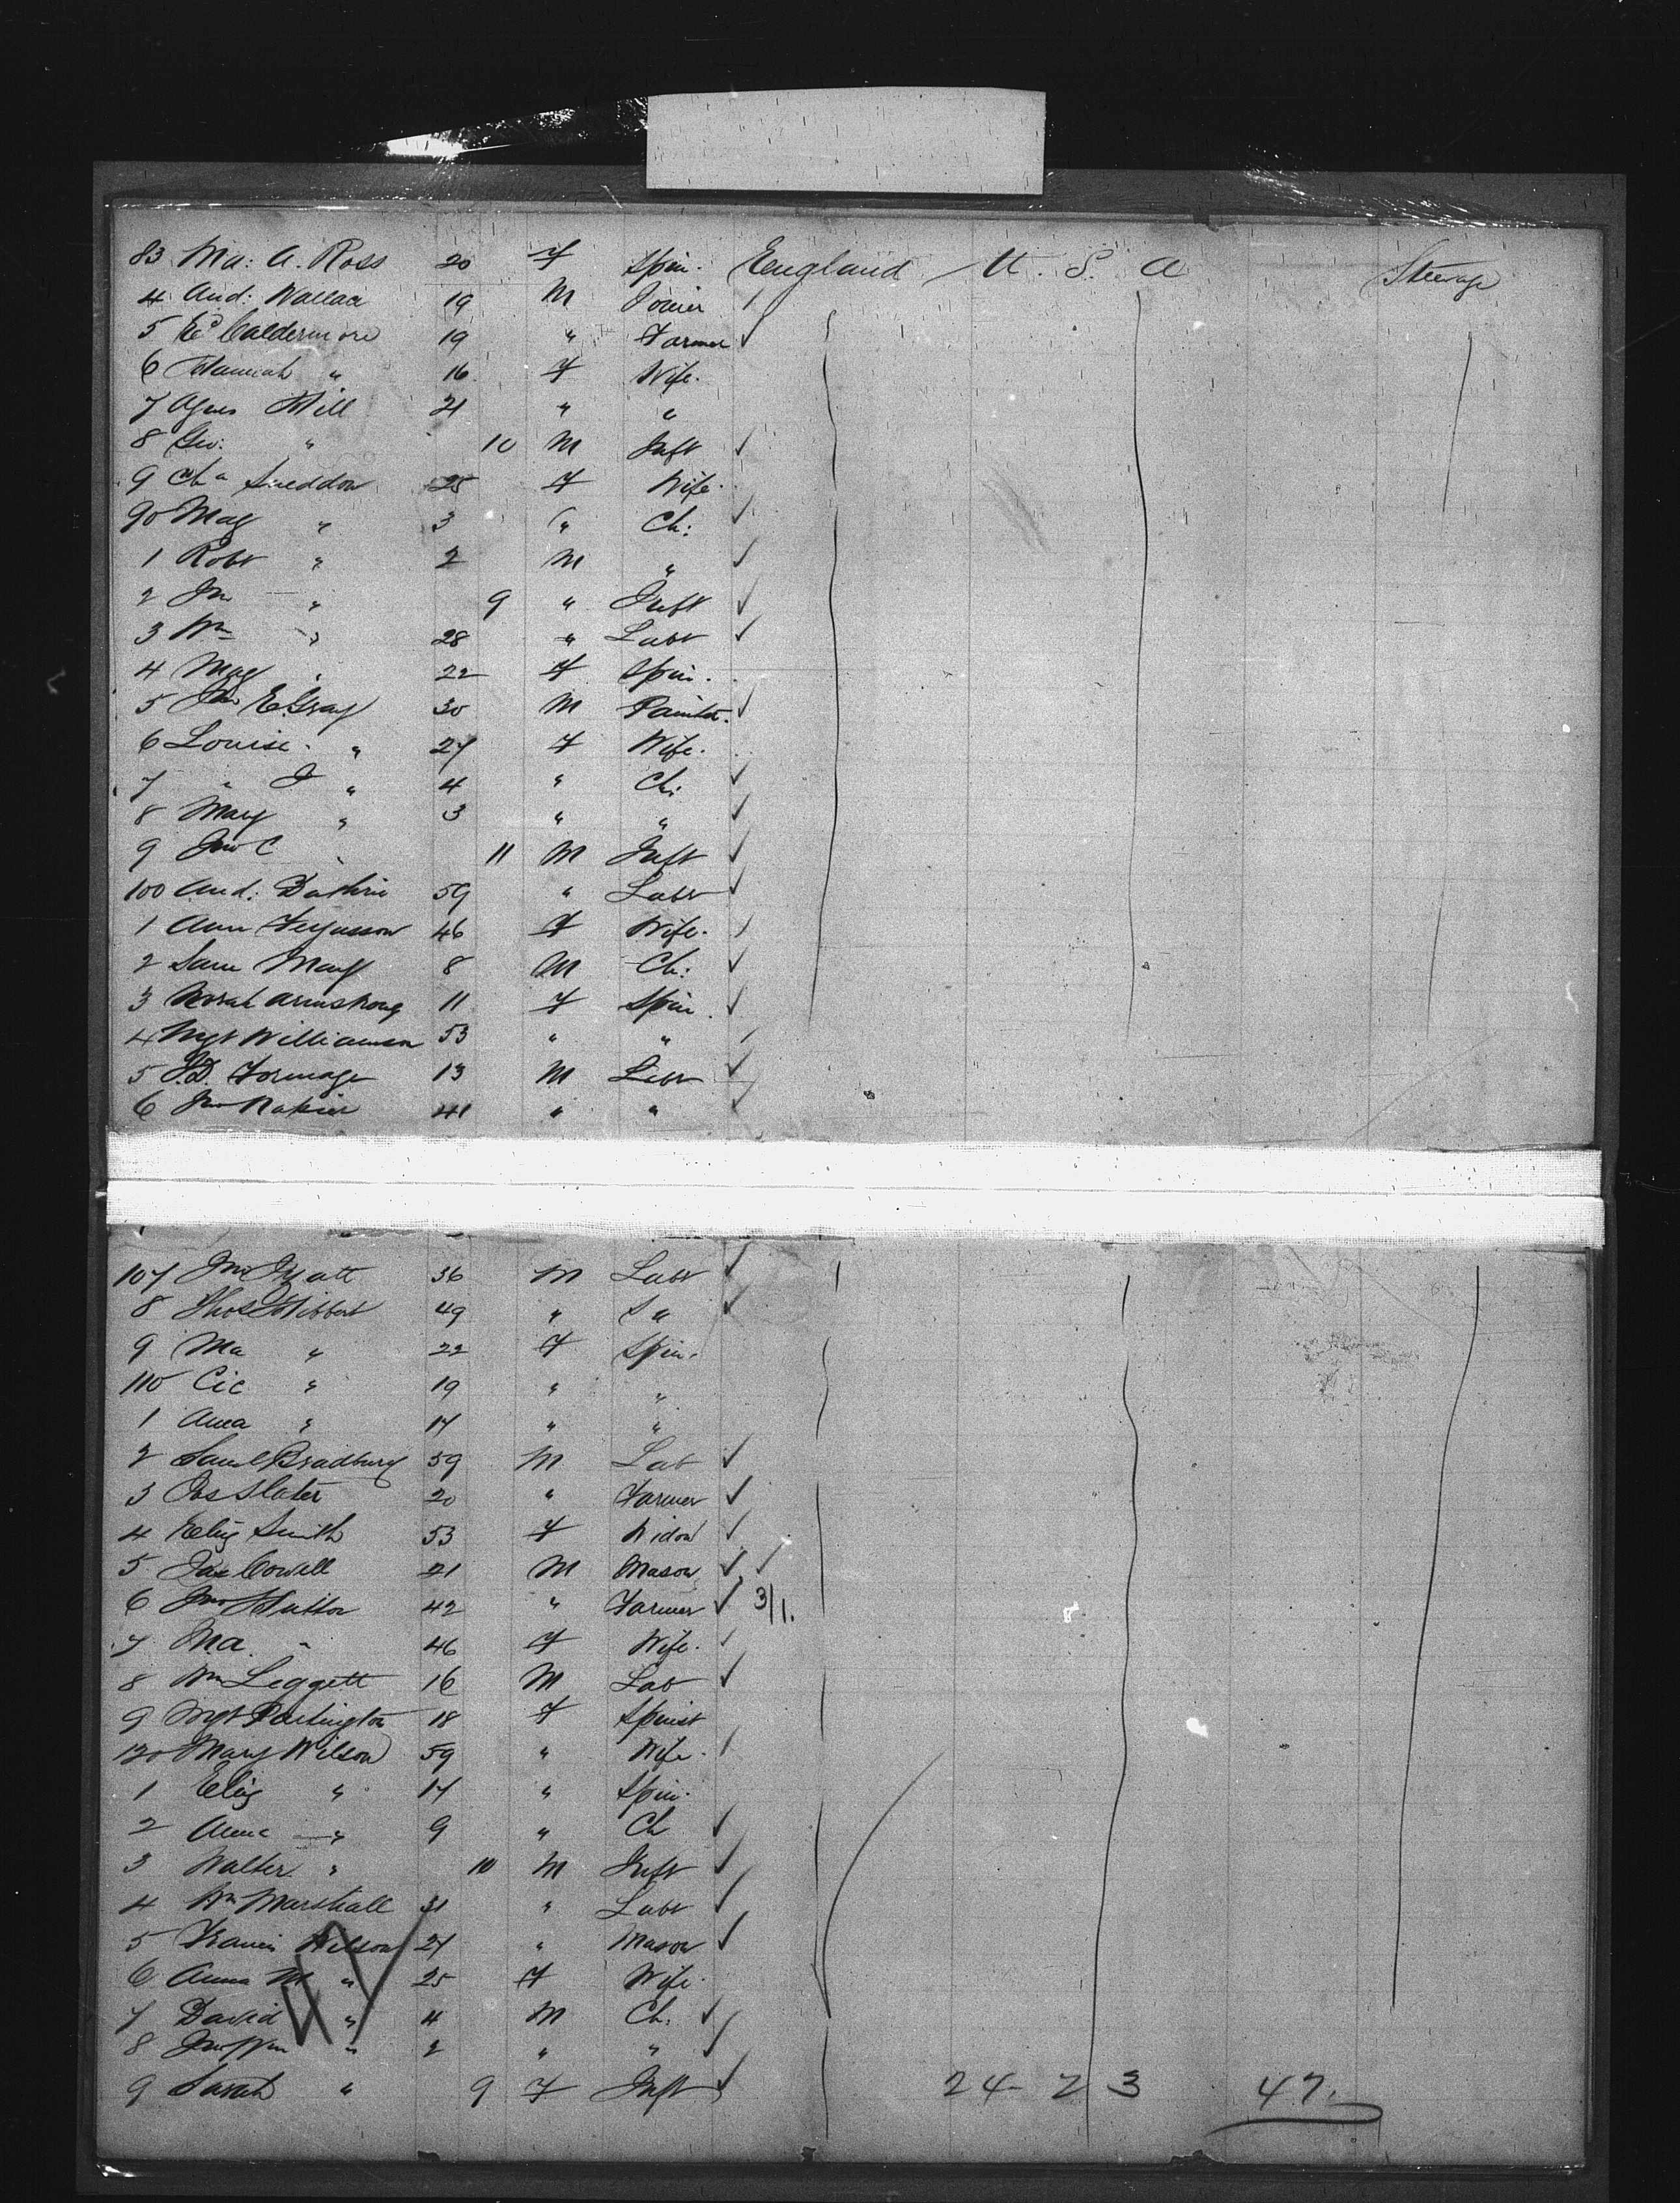 83 Ma: A. Ross 20 F Spin. England U. S. A Steerage
4 And: Wallace 19 M
5 Ed Caldermore 19 " Farmer
6 Hannah " 16 F Wife.
7 Agnes Hill 21 " "
8 Geo: " 10 M Inft
9 Cha Sneddon 25 F Wife.
90 Mag " 3 " Ch:
1 Robt " 2 M "
2 Jn " 9 " Inft
3 Wm " 28 " Labr
4 Mag " 22 F Spin.
5 Jno E. Gray 30 M Painter.
6 Louise " 27 F Wife.
7 " J " 4 " Ch:
8 Mary " 3 " "
9 Jno C " 11 M Inft
100 And: 59 " Labr
1 Ann Fergusson 46 F Wife.
2 Sam Mary 8 M Ch:
3 Norah Armstrong 11 F Spin.
4 Mgt Williamson 53 " "
5 J.D. Formage 13 M Labr
6 Jno Napier 41 " "
107 Jno 36 M Labr
8 Thos Hibbert 49 " "
9 Ma " 22 F Spin.
110 Cic " 19 " "
1 Anna " 17 " "
2 Saml Bradbury 59 M Lab
3 Jos Slater 20 " Farmer
4 Eliz Smith 53 F Widow
5 Jas Cowell 21 M Mason
6 Jno Hutton 42 " Farmer 3/1.
7 Ma. " 46 F Wife.
8 Wm Leggett 16 M Lab
9 Mgt Partington 18 F Spinst
120 Mary Wilson 59 " Wife.
1 Eliz " 17 " Spin.
2 Anna " 9 " Ch
3 Walter " 10 M Inft
4 Wm Marshall 31 " Labr
5 Francis Wilson 27 " Mason
6 Anna M " 25 F Wife.
7 David " 4 M Ch.
8 Jno Wm " 2 " "
9 Sarah " 9 F Inft 24 - 23 47.